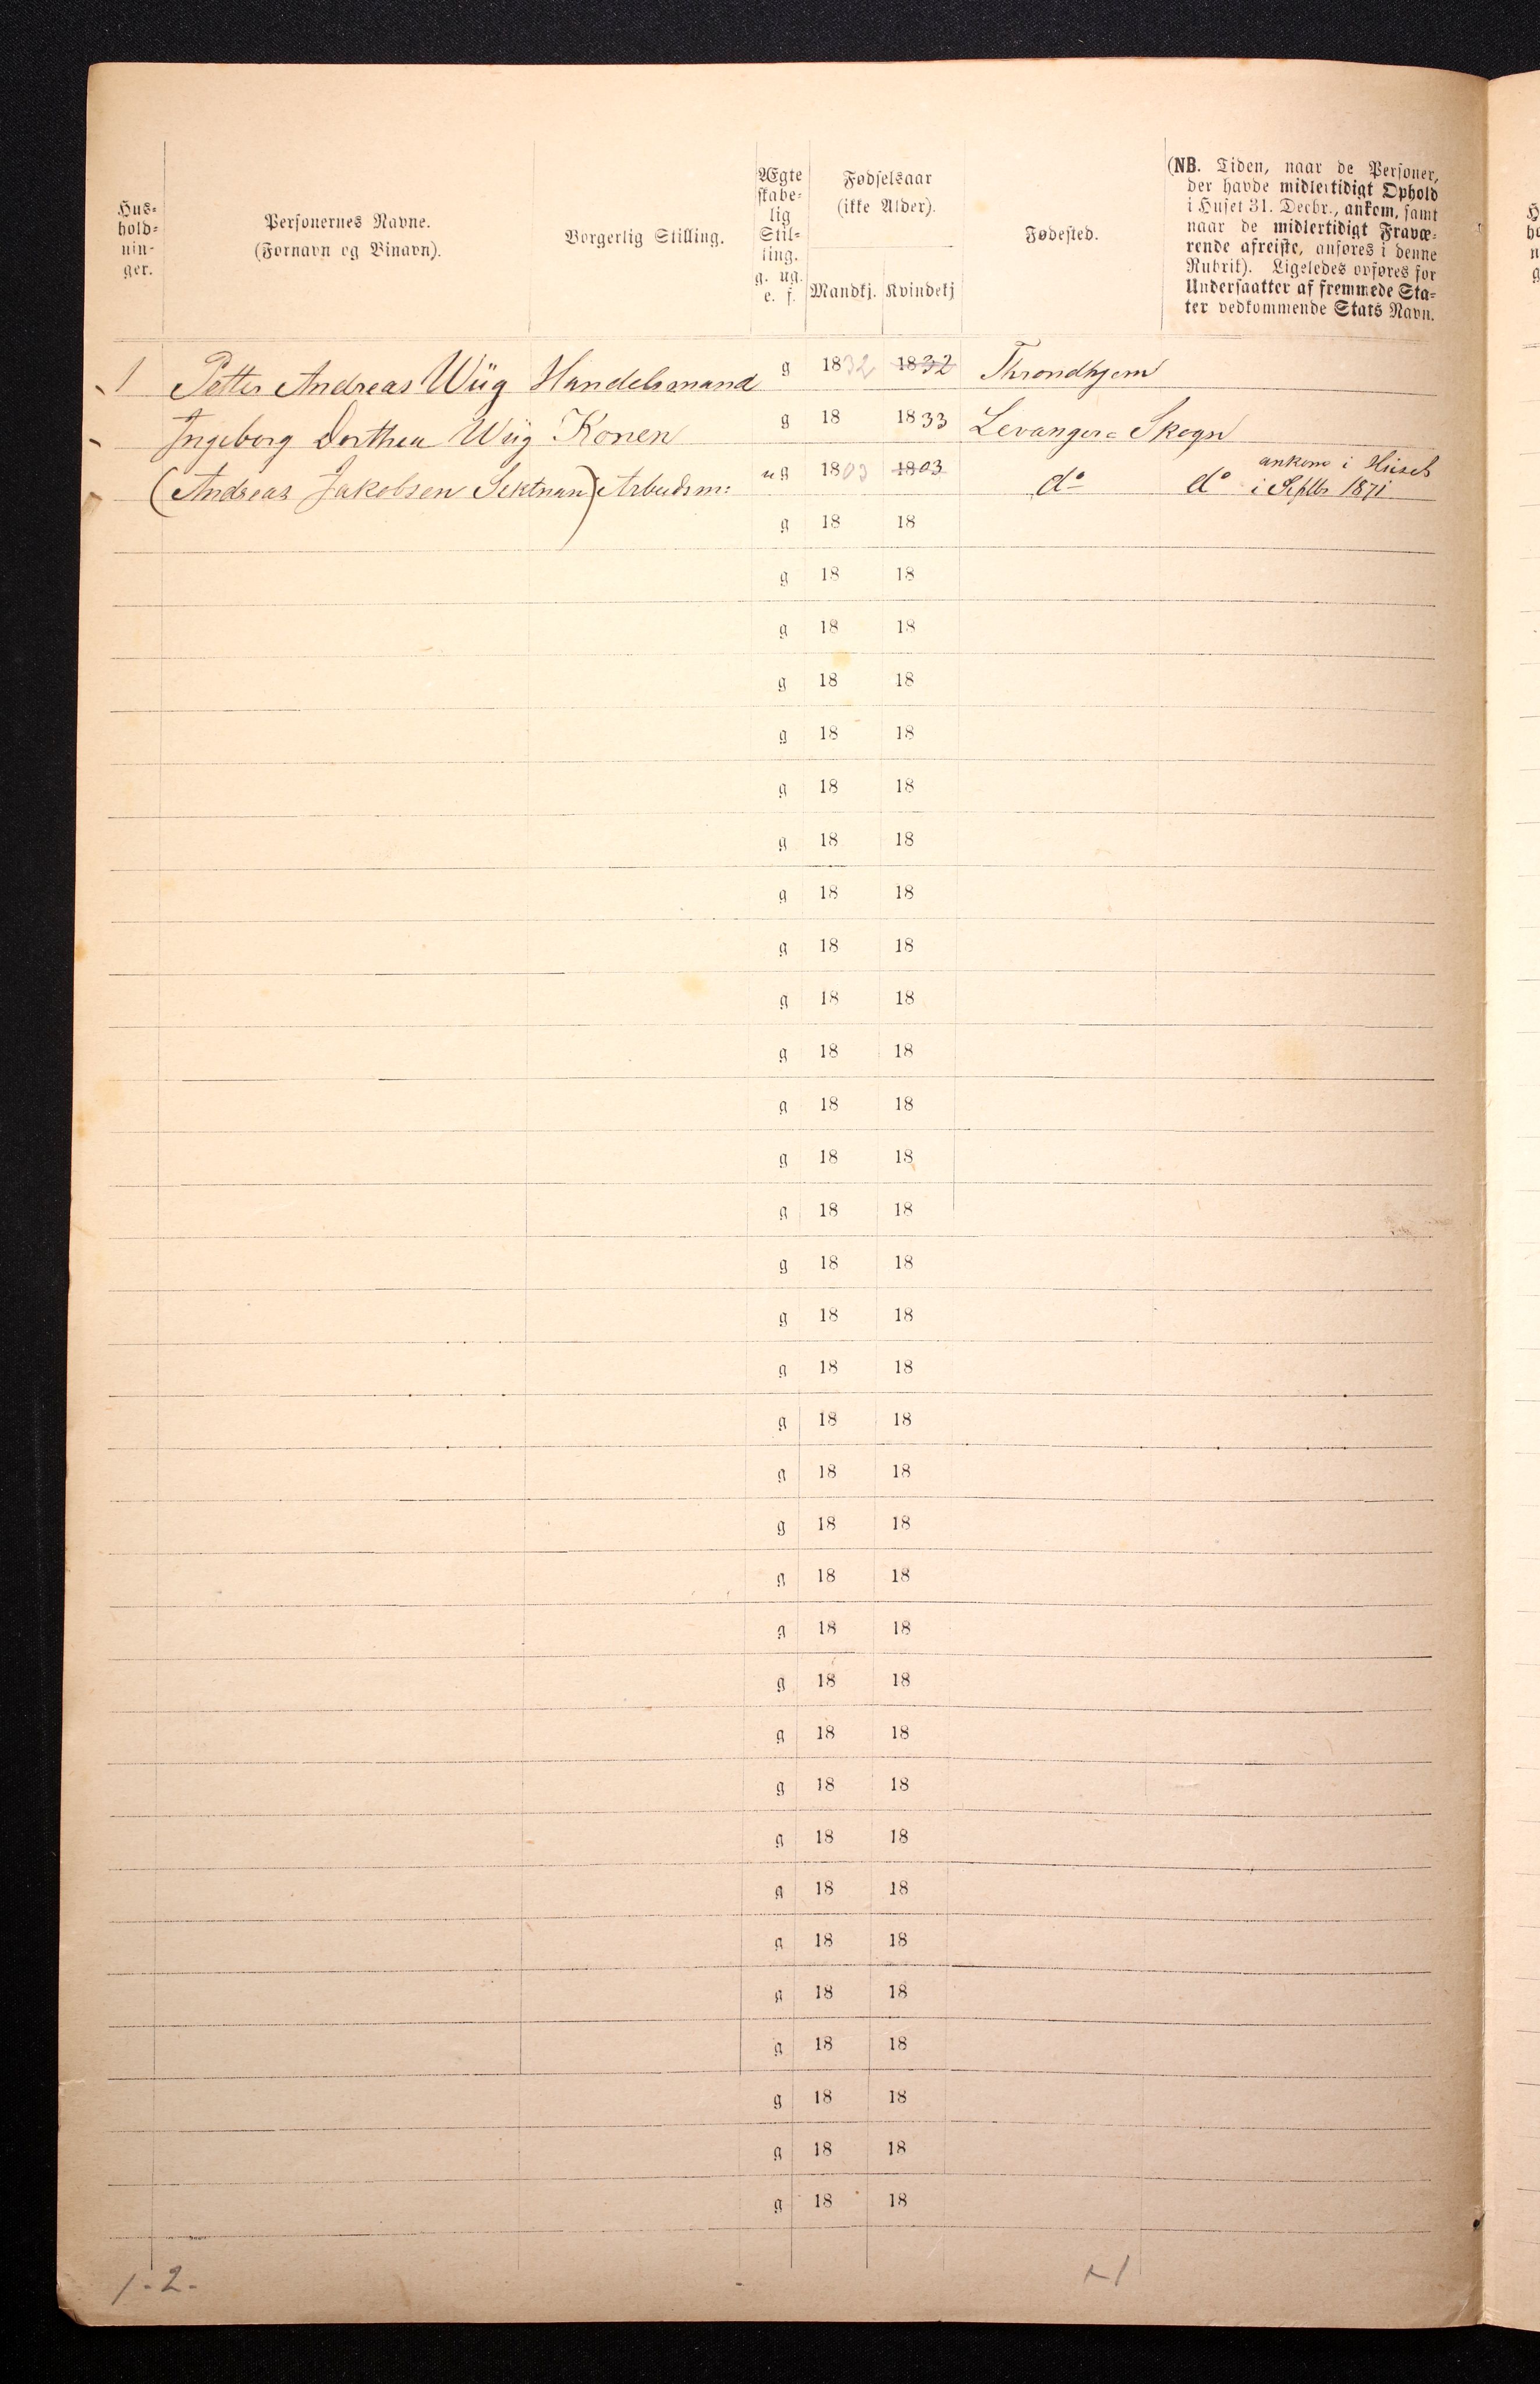 Hus-
hold-
nin-
ger.
Personernes Navne.
(Fornavn og Binavn).
Borgerlig Stilling.
Ægte
skabe-
lig
Stil-
ling.
g. ug.
e. f.
Fødselsaar
(ikke Alder).
Mandkj. Kvindekj
Fødested.
(NB. Tiden, naar de Personer,
der havde midlertidigt Ophold
i Huset 31. Decbr., ankom, samt
naar de midlertidigt Fravæ-
rende afreiste, anføres i denne
Rubrik). Ligeledes opføres for
Undersaatter af fremmede Sta-
ter vedkommende Stats Navn.
1 Petter Andreas Wiig Handelsmand g 1832 1832 Throndhjem
Ingeborg Dorthea Wiig Konen g 18 1833 Levanger= Skogn
(Andreas Jakobsen Sektnan) Arbeidsm: ug 1803 1803 do do ankom i Huset
i Septbr 1871
g 18 18
g 18 18
g 18 18
g 18 18
g 18 18
g 18 18
g 18 18
g 18 18
g 18 18
g 18 18
g 18 18
g 18 18
g 18 18
g 18 18
g 18 18
g 18 18
g 18 18
g 18 18
g 18 18
g 18 18
g 18 18
g 18 18
g 18 18
g 18 18
g 18 18
g 18 18
g 18 18
g 18 18
g 18 18
g 18 18
g 18 18
g 18 18
g 18 18
1-2-